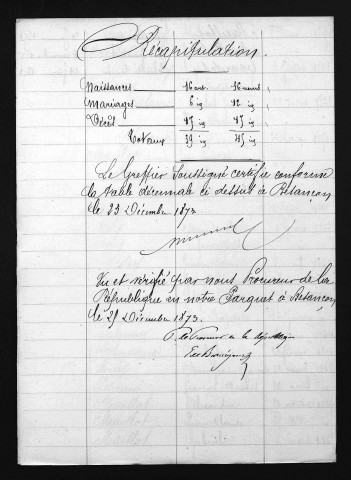 Récapitulation.
Naissances 16 act. 16 noms
Mariages 6 id 12 id
Décès 17 id 17 id
Totaux 39 id 45 id
Le Greffier Soussigné certifie conforme
la table décennale ci dessus à Besançon
le 23 Décembre 1873
Vu et vérifié par nous Procureur de la
République en notre Parquet à Besançon
le 25 Décembre 1873.
P. le Procureur de la République